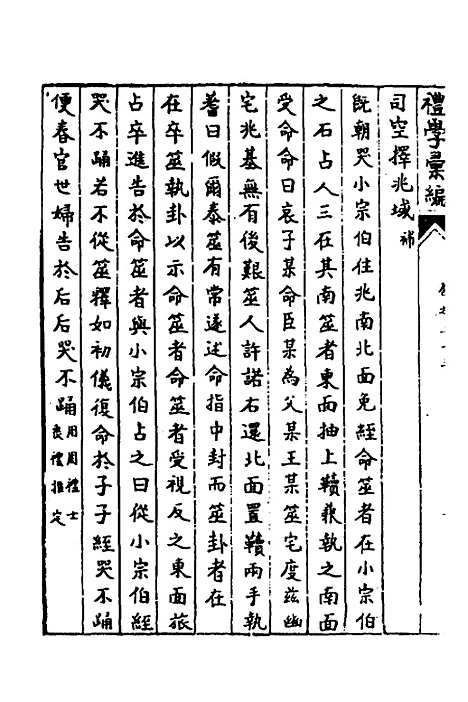 禮學彙編
司空擇兆域補
既朝哭小宗伯往兆南北面免絰命筮者在小宗伯
之右占人三在其南筮者東面抽上韇兼執之南面
受命命曰哀子某命臣某為父某王某筮宅度茲幽
宅兆基無有後艱筮人許諾右還北面置韇兩手執
蓍曰假爾泰筮有常遂述命指中封而筮卦者在
在卒筮執卦以示命筮者命筮者受視反之東面旅
占卒進告於命筮者與小宗伯占之曰從小宗伯絰
哭不踊若不從筮釋如初儀復命於子子絰哭不踊
便春官世婦告於后后哭不踊用周禮士
喪禮推定